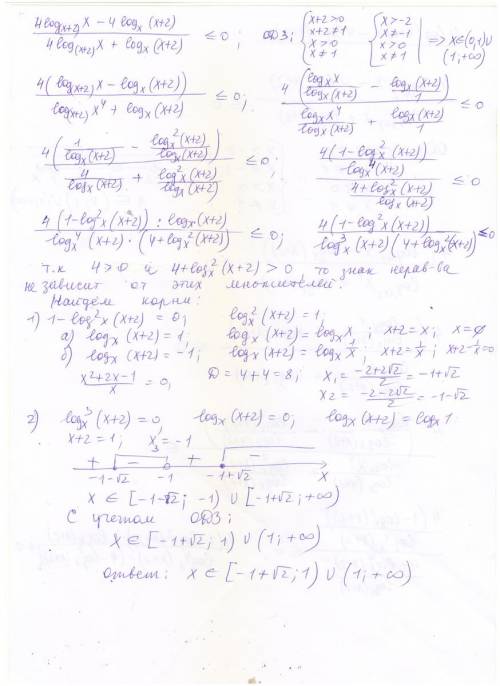 (4log_(x+2) x − 4 log_x (x+2)) / (4 log_(x+2) x + log_x (x+2)) ≤ 0 ; ОДЗ: { x+2>0 x+2≠1 x>0 x≠1 { x>-2 x≠-1 x>0 x≠1 => x∈(0,1)∪(1,+∞)
4(log_(x+2) x − log_x (x+2)) / (log_(x+2) x^4 + log_x (x+2)) ≤ 0; 4(log_x x / log_x (x+2) − log_x (x+2) / 1) / (log_x x^4 / log_x (x+2) + log_x (x+2) / 1) ≤ 0
4(1 / log_x (x+2) − log_x^2 (x+2) / log_x (x+2)) / (4 / log_x (x+2) + log_x^2 (x+2) / log_x (x+2)) ≤ 0; (4(1−log_x^2 (x+2)) / log_x^4 (x+2)) / ((4+log_x^2 (x+2)) / log_x (x+2)) ≤ 0
4(1−log_x^2 (x+2)) · log_x (x+2) / (log_x^4 (x+2) · (4+log_x^2 (x+2))) ≤ 0; 4(1−log_x^2 (x+2)) / (log_x^3 (x+2) (4+log_x^2 (x+2))) ≤ 0
т.к 4>0 и 4+log_x^2 (x+2) >0, то знак нерав-ва
не зависит от этих множителей.
Найдём корни:
1) 1−log_x^2 (x+2) = 0; log_x^2 (x+2) = 1;
а) log_x (x+2) = 1; log_x (x+2) = log_x x ; x+2=x; x=∅
б) log_x (x+2) = -1; log_x (x+2) = log_x 1/x ; x+2=1/x ; x+2−1/x=0
(x²+2x−1)/x = 0; D = 4+4 = 8; x₁ = (−2+2√2)/2 = −1+√2
x₂ = (−2−2√2)/2 = −1−√2
2) log_x^3 (x+2) = 0, log_x (x+2) = 0; log_x (x+2) = log_x 1
x+2=1; x₃=-1
+ − + −
−1−√2 −1 −1+√2 x
x ∈ [−1−√2; −1) ∪ [−1+√2; +∞)
С учетом ОДЗ:
x ∈ [−1+√2; 1) ∪ (1; +∞)
ответ: x ∈ [−1+√2; 1) ∪ (1; +∞)